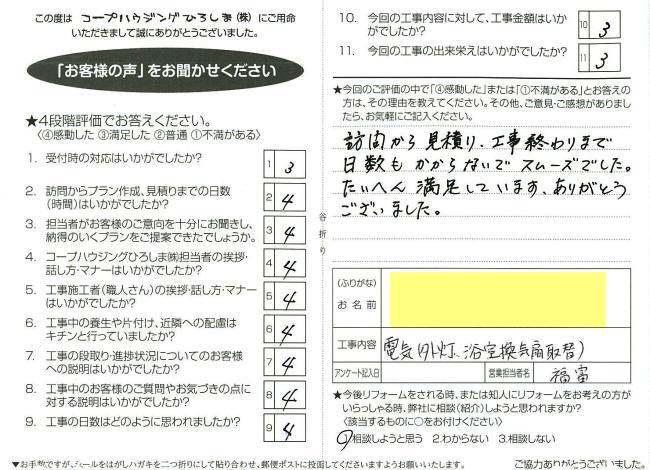 この度は コープハウジングひろしま(株) にご用命
いただきまして誠にありがとうございました。
「お客様の声」をお聞かせください
★4段階評価でお答えください。
〈④感動した ③満足した ②普通 ①不満がある〉
1. 受付時の対応はいかがでしたか?
1 3
2. 訪問からプラン作成、見積りまでの日数
(時間)はいかがでしたか?
2 4
3. 担当者がお客様のご意向を十分にお聞きし、
納得のいくプランをご提案できたでしょうか。
3 4
4. コープハウジングひろしま㈱担当者の挨拶・
話し方・マナーはいかがでしたか?
4 4
5. 工事施工者(職人さん)の挨拶・話し方・マナー
はいかがでしたか?
5 4
6. 工事中の養生や片付け、近隣への配慮は
キチンと行っていましたか?
6 4
7. 工事の段取り・進捗状況についてのお客様
への説明はいかがでしたか?
7 4
8. 工事中のお客様のご質問やお気づきの点に
対する説明はいかがでしたか?
8 4
9. 工事の日数はどのように思われましたか?
9 4
谷折り
10. 今回の工事内容に対して、工事金額はいか
がでしたか?
10 3
11. 今回の工事の出来栄えはいかがでしたか?
11 3
★今回のご評価の中で「④感動した」または「①不満がある」とお答えの
方は、その理由を教えてください。その他、ご意見・ご感想がありました
ら、お気軽にご記入ください。
訪問から見積り、工事終わりまで
日数もかからないでスムーズでした。
たいへん満足しています、ありがとう
ございました。
(ふりがな)
お名前
工事内容 電気(外灯、浴室換気扇取替)
アンケート記入日 営業担当者名 福富
★今後リフォームをされる時、または知人にリフォームをお考えの方が
いらっしゃる時、弊社に相談(紹介)しようと思われますか?
〈該当するものに〇をお付けください〉
1.相談しようと思う 2.わからない 3.相談しない
▼お手数ですが、シールをはがしハガキを二つ折りにして貼り合わせ、郵便ポストに投函してくださいますようお願いいたします。
ご協力ありがとうございました。